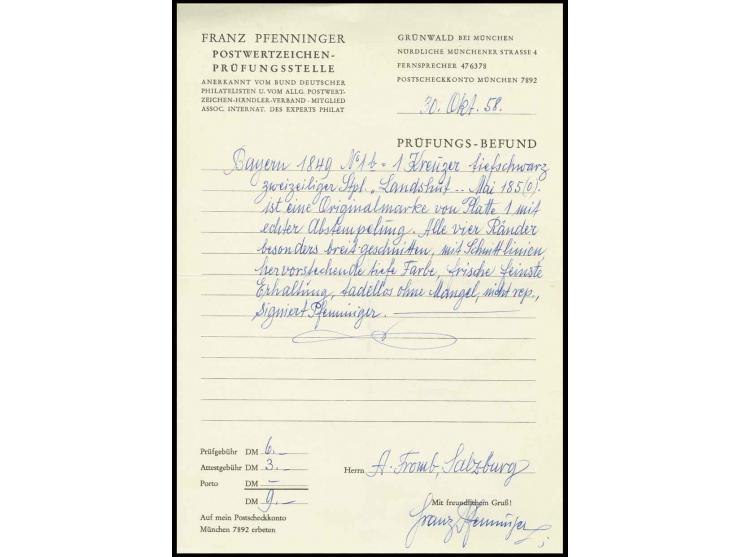 FRANZ PFENNINGER
POSTWERTZEICHEN-
PRÜFUNGSSTELLE
ANERKANNT VOM BUND DEUTSCHER
PHILATELISTEN U. VOM ALLG. POSTWERT-
ZEICHEN-HÄNDLER-VERBAND - MITGLIED
ASSOC. INTERNAT. DES EXPERTS PHILAT
GRÜNWALD BEI MÜNCHEN
NÖRDLICHE MÜNCHENER STRASSE 4
FERNSPRECHER 476378
POSTSCHECKKONTO MÜNCHEN 7892
30. Okt. 58.
PRÜFUNGS-BEFUND
Bayern 1849 No 1b = 1 Kreuzer tiefschwarz
zweizeiliger Stpl. „Landshut .. Mai 185(0).
ist eine Originalmarke von Platte 1 mit
echter Abstempelung. Alle vier Ränder
besonders breit geschnitten, mit Schnittlinien,
hervorstechende tiefe Farbe, frische feinste
Erhaltung, tadellos ohne Mangel, nicht rep.,
signiert Pfenninger.
Prüfgebühr DM 6.-
Attestgebühr DM 3.-
Porto DM -
DM 9.-
Auf mein Postscheckkonto
München 7892 erbeten
Herrn A. Fromb, Salzburg
Mit freundlichem Gruß!
Franz Pfenninger